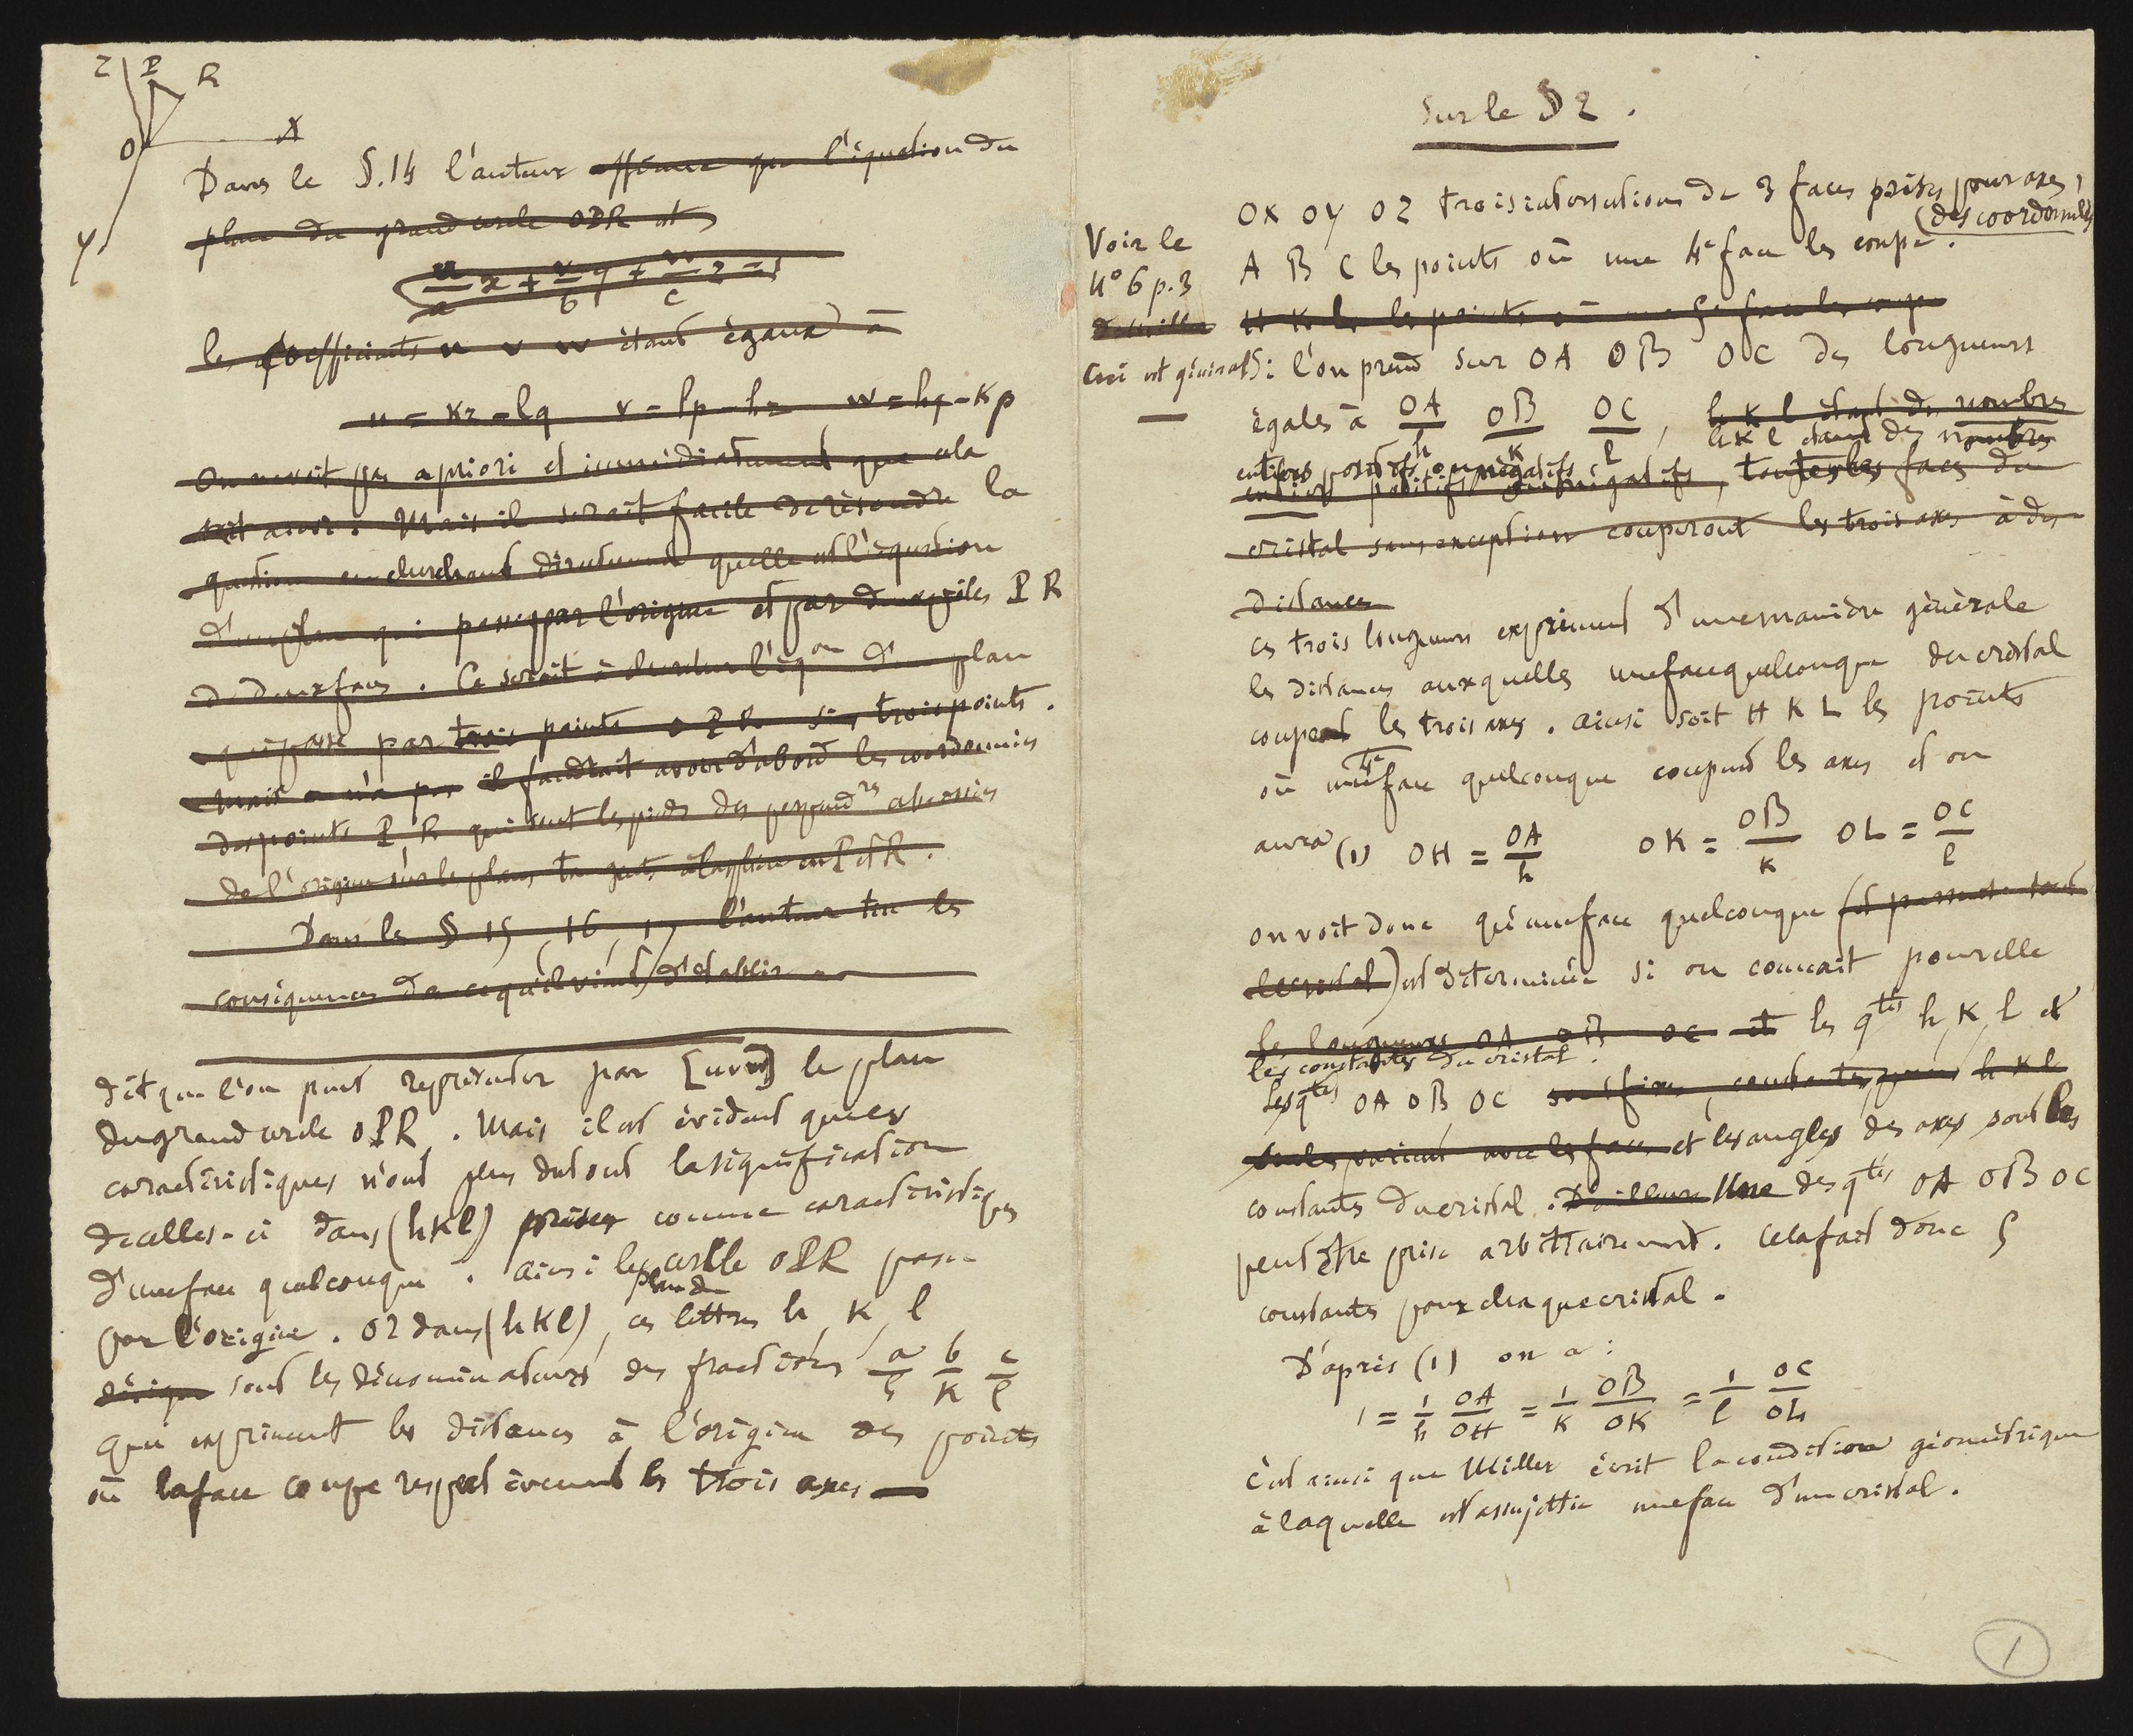 Z P R
O X
Y
Dans le §.14 l'auteur affirme que l'équation du
plan du grand cercle OPR est
u/a x + v/b y + w/c z = 1
les coefficients u v w étant égaux à
u = kr - lq v = lp - hr w = hq - kp
On ne voit pas a priori et immédiatement que cela
soit ainsi. Mais il serait facile de résoudre la
question en cherchant directement quelle est l'équation
d'un plan qui passe par l'origine et par deux pôles P R
de deux faces. Ce serait à chercher l'éqon d'un plan
qui passe par trois points O P R trois points.
Mais on n'a pas il faudrait avoir d'abord les coordonnées
des points P, R qui sont les pieds des perpendres abaissées
de l'origine sur les plans à la sphère en P et R.
Dans les § 15, 16, 17 l'auteur tire les
conséquences de ce qu'il vient d'établir
dit que l'on peut représenter par [uvw] le plan
du grand cercle OPR. Mais il est évident que ces
caractéristiques n'ont plus du tout la signification
de celles-ci dans (hkl) prises comme caractéristiques
d'une face quelconque. Ainsi le cercle OPR passe
plan du
par l'origine. Or dans (hkl), ces lettres h, k, l
sont les dénominateurs des fractions a/h b/k c/l
qui expriment les distances à l'origine des points
où la face coupe respectivement les trois axes
Sur le § 2.
OX OY OZ trois intersections de 3 faces prises pour axes,
(des coordonnées
Voir le
A B C les points où une 4e face les coupe.
N° 6 p.3
de Miller H K L les points où une 5e face les coupe
Ceci est général Si l'on prend sur OA OB OC des longueurs
égales à OA/h OB/k OC/l, h k l étant des nombres
h k l étant des nombres
entiers positifs ou négatifs
entiers positifs ou négatifs, toutes les faces du
cristal sans exception couperont les trois axes à des
distances
ces trois longueurs expriment d'une manière générale
les distances auxquelles une face quelconque du cristal
coupe les trois axes. Ainsi soit H K L les points
où une face quelconque coupent les axes et on
aura (1) OH = OA/h OK = OB/k OL = OC/l
on voit donc qu'une face quelconque
le cristal) est déterminée si on connait pour elle
les longueurs OA OB OC et les qtés h, k, l et
les constantes du cristal.
Les qtés OA OB OC sont fixes, constantes, h k l
seules varient avec les faces et les angles des axes sont les
constantes du cristal. D'ailleurs Une des qtés OA OB OC
peut être prise arbitrairement. Cela fait donc 5
constantes pour chaque cristal.
D'après (1) on a :
1 = 1/h OA/OH = 1/k OB/OK = 1/l OC/OL
C'est ainsi que Miller écrit la condition géométrique
à laquelle est assujettie une face d'un cristal.
1